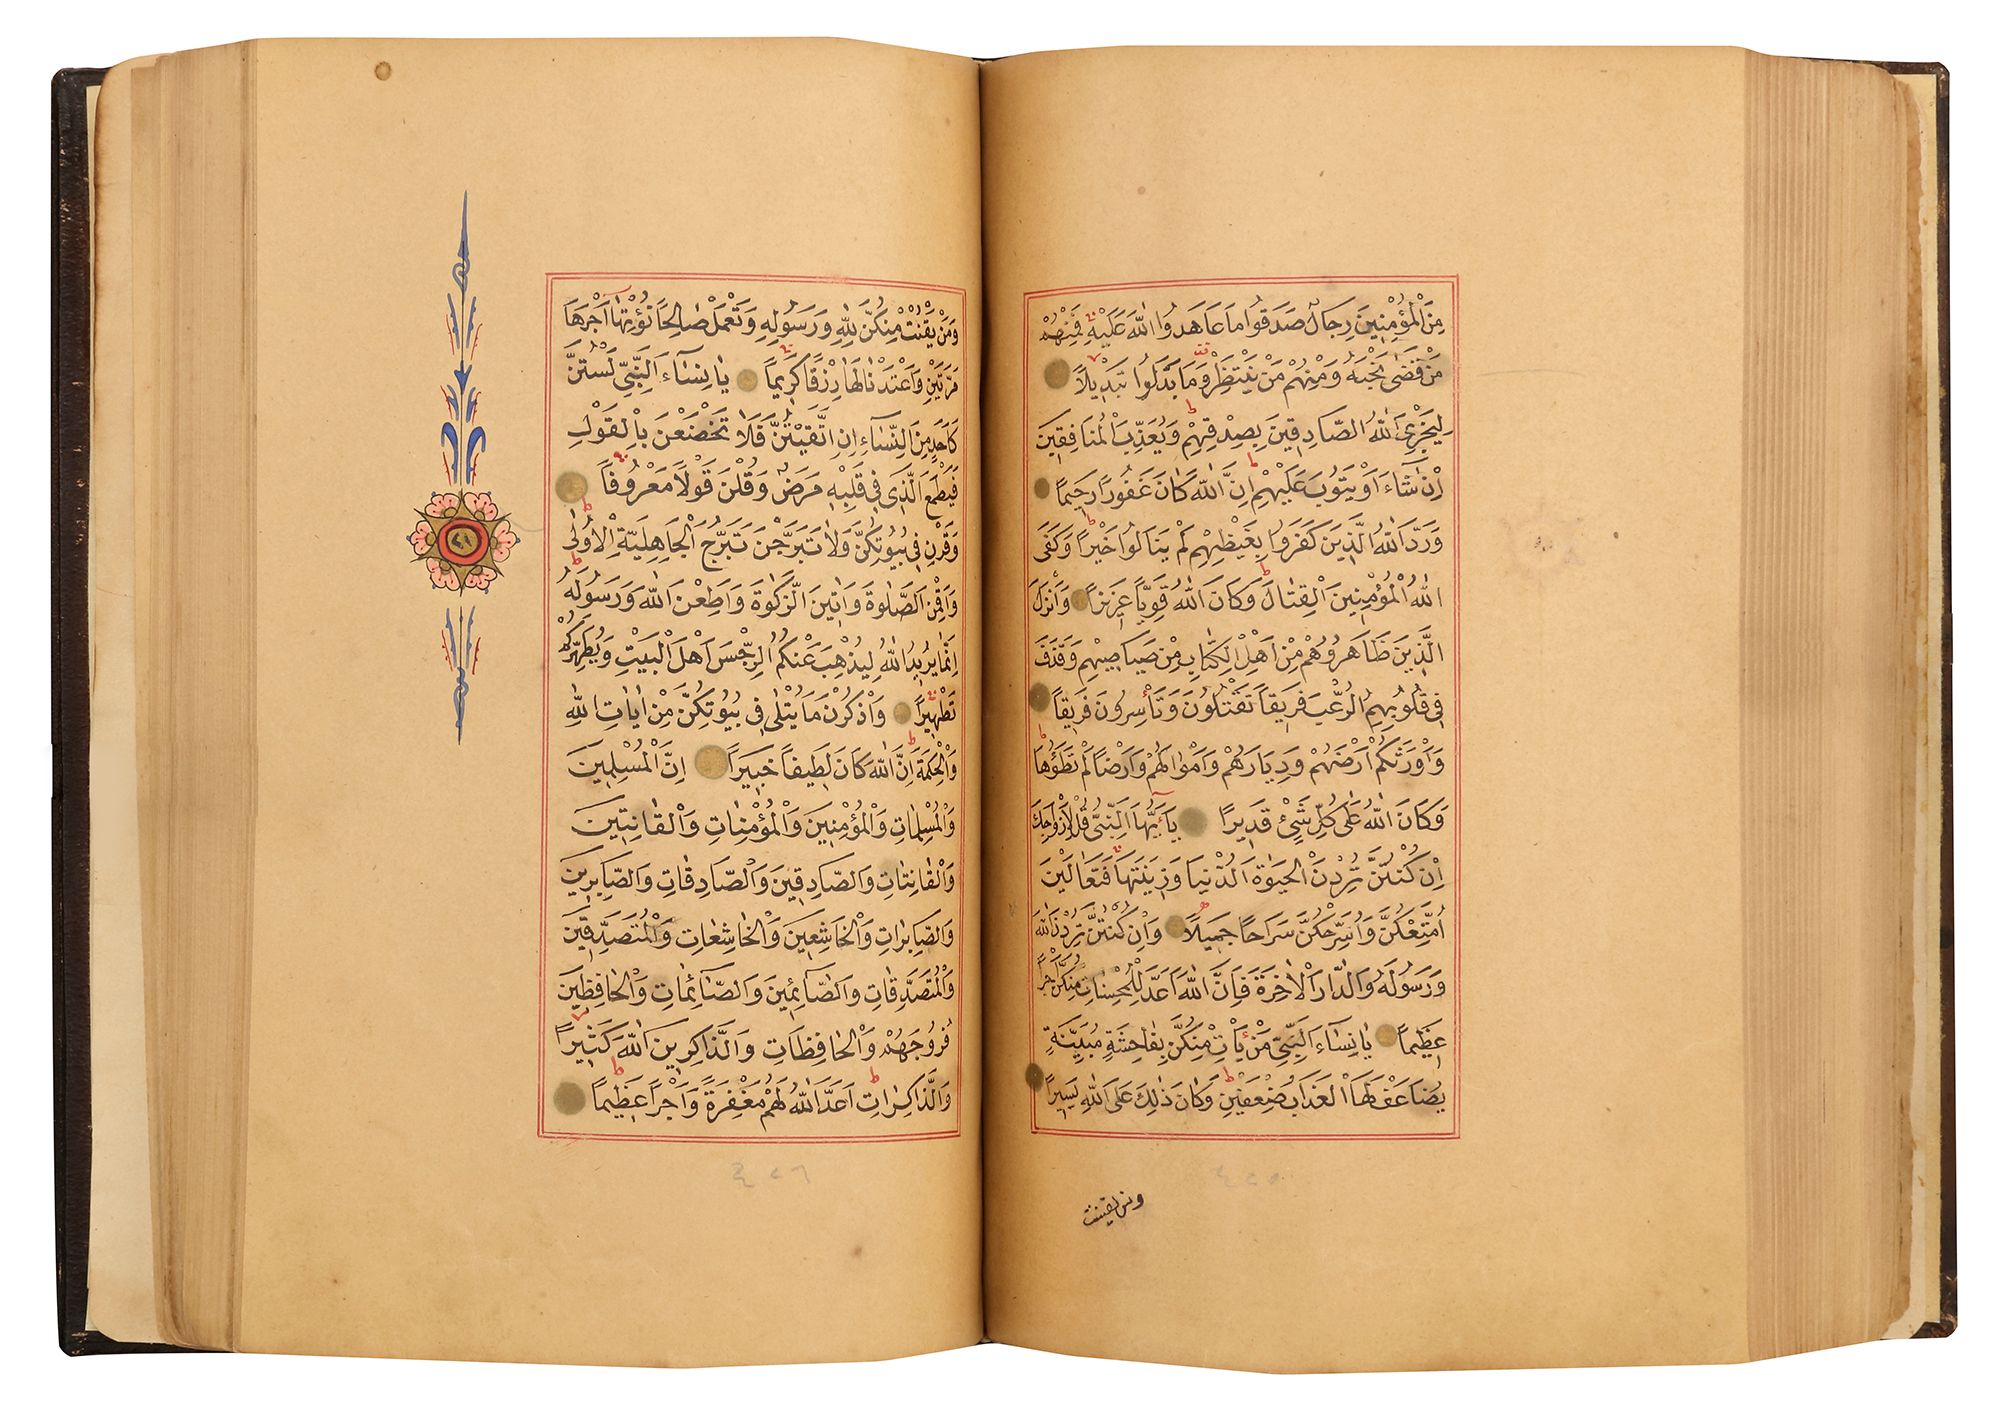 مِنَ الْمُؤْمِنِينَ رِجَالٌ صَدَقُوا مَا عَاهَدُوا اللّٰهَ عَلَيْهِ فَمِنْهُمْ
مَنْ قَضٰى نَحْبَهُ وَمِنْهُمْ مَنْ يَنْتَظِرُ وَمَا بَدَّلُوا تَبْدِيلًا
لِيَجْزِيَ اللّٰهُ الصَّادِقِينَ بِصِدْقِهِمْ وَيُعَذِّبَ الْمُنَافِقِينَ
اِنْ شَآءَ اَوْ يَتُوبَ عَلَيْهِمْ اِنَّ اللّٰهَ كَانَ غَفُورًا رَحِيمًا
وَرَدَّ اللّٰهُ الَّذِينَ كَفَرُوا بِغَيْظِهِمْ لَمْ يَنَالُوا خَيْرًا وَكَفَى
اللّٰهُ الْمُؤْمِنِينَ الْقِتَالَ وَكَانَ اللّٰهُ قَوِيًّا عَزِيزًا وَاَنْزَلَ
الَّذِينَ ظَاهَرُوهُمْ مِنْ اَهْلِ الْكِتَابِ مِنْ صَيَاصِيهِمْ وَقَذَفَ
فِي قُلُوبِهِمُ الرُّعْبَ فَرِيقًا تَقْتُلُونَ وَتَأْسِرُونَ فَرِيقًا
وَاَوْرَثَكُمْ اَرْضَهُمْ وَدِيَارَهُمْ وَاَمْوَالَهُمْ وَاَرْضًا لَمْ تَطَؤُهَا
وَكَانَ اللّٰهُ عَلٰى كُلِّ شَيْءٍ قَدِيرًا يَآ اَيُّهَا النَّبِيُّ قُلْ لِاَزْوَاجِكَ
اِنْ كُنْتُنَّ تُرِدْنَ الْحَيٰوةَ الدُّنْيَا وَزِينَتَهَا فَتَعَالَيْنَ
اُمَتِّعْكُنَّ وَاُسَرِّحْكُنَّ سَرَاحًا جَمِيلًا وَاِنْ كُنْتُنَّ تُرِدْنَ اللّٰهَ
وَرَسُولَهُ وَالدَّارَ الْاٰخِرَةَ فَاِنَّ اللّٰهَ اَعَدَّ لِلْمُحْسِنَاتِ مِنْكُنَّ اَجْرًا
عَظِيمًا يَا نِسَآءَ النَّبِيِّ مَنْ يَأْتِ مِنْكُنَّ بِفَاحِشَةٍ مُبَيِّنَةٍ
يُضَاعَفْ لَهَا الْعَذَابُ ضِعْفَيْنِ وَكَانَ ذٰلِكَ عَلَى اللّٰهِ يَسِيرًا
٤٢٥
ومن يقنت
وَمَنْ يَقْنُتْ مِنْكُنَّ لِلّٰهِ وَرَسُولِهِ وَتَعْمَلْ صَالِحًا نُؤْتِهَآ اَجْرَهَا
مَرَّتَيْنِ وَاَعْتَدْنَا لَهَا رِزْقًا كَرِيمًا يَا نِسَآءَ النَّبِيِّ لَسْتُنَّ
كَاَحَدٍ مِنَ النِّسَآءِ اِنِ اتَّقَيْتُنَّ فَلَا تَخْضَعْنَ بِالْقَوْلِ
فَيَطْمَعَ الَّذِي فِي قَلْبِهِ مَرَضٌ وَقُلْنَ قَوْلًا مَعْرُوفًا
وَقَرْنَ فِي بُيُوتِكُنَّ وَلَا تَبَرَّجْنَ تَبَرُّجَ الْجَاهِلِيَّةِ الْاُولٰى
وَاَقِمْنَ الصَّلٰوةَ وَاٰتِينَ الزَّكٰوةَ وَاَطِعْنَ اللّٰهَ وَرَسُولَهُ
اِنَّمَا يُرِيدُ اللّٰهُ لِيُذْهِبَ عَنْكُمُ الرِّجْسَ اَهْلَ الْبَيْتِ وَيُطَهِّرَكُمْ
تَطْهِيرًا وَاذْكُرْنَ مَا يُتْلٰى فِي بُيُوتِكُنَّ مِنْ اٰيَاتِ اللّٰهِ
وَالْحِكْمَةِ اِنَّ اللّٰهَ كَانَ لَطِيفًا خَبِيرًا اِنَّ الْمُسْلِمِينَ
وَالْمُسْلِمَاتِ وَالْمُؤْمِنِينَ وَالْمُؤْمِنَاتِ وَالْقَانِتِينَ
وَالْقَانِتَاتِ وَالصَّادِقِينَ وَالصَّادِقَاتِ وَالصَّابِرِينَ
وَالصَّابِرَاتِ وَالْخَاشِعِينَ وَالْخَاشِعَاتِ وَالْمُتَصَدِّقِينَ
وَالْمُتَصَدِّقَاتِ وَالصَّآئِمِينَ وَالصَّآئِمَاتِ وَالْحَافِظِينَ
فُرُوجَهُمْ وَالْحَافِظَاتِ وَالذَّاكِرِينَ اللّٰهَ كَثِيرًا
وَالذَّاكِرَاتِ اَعَدَّ اللّٰهُ لَهُمْ مَغْفِرَةً وَاَجْرًا عَظِيمًا
٤٢٦